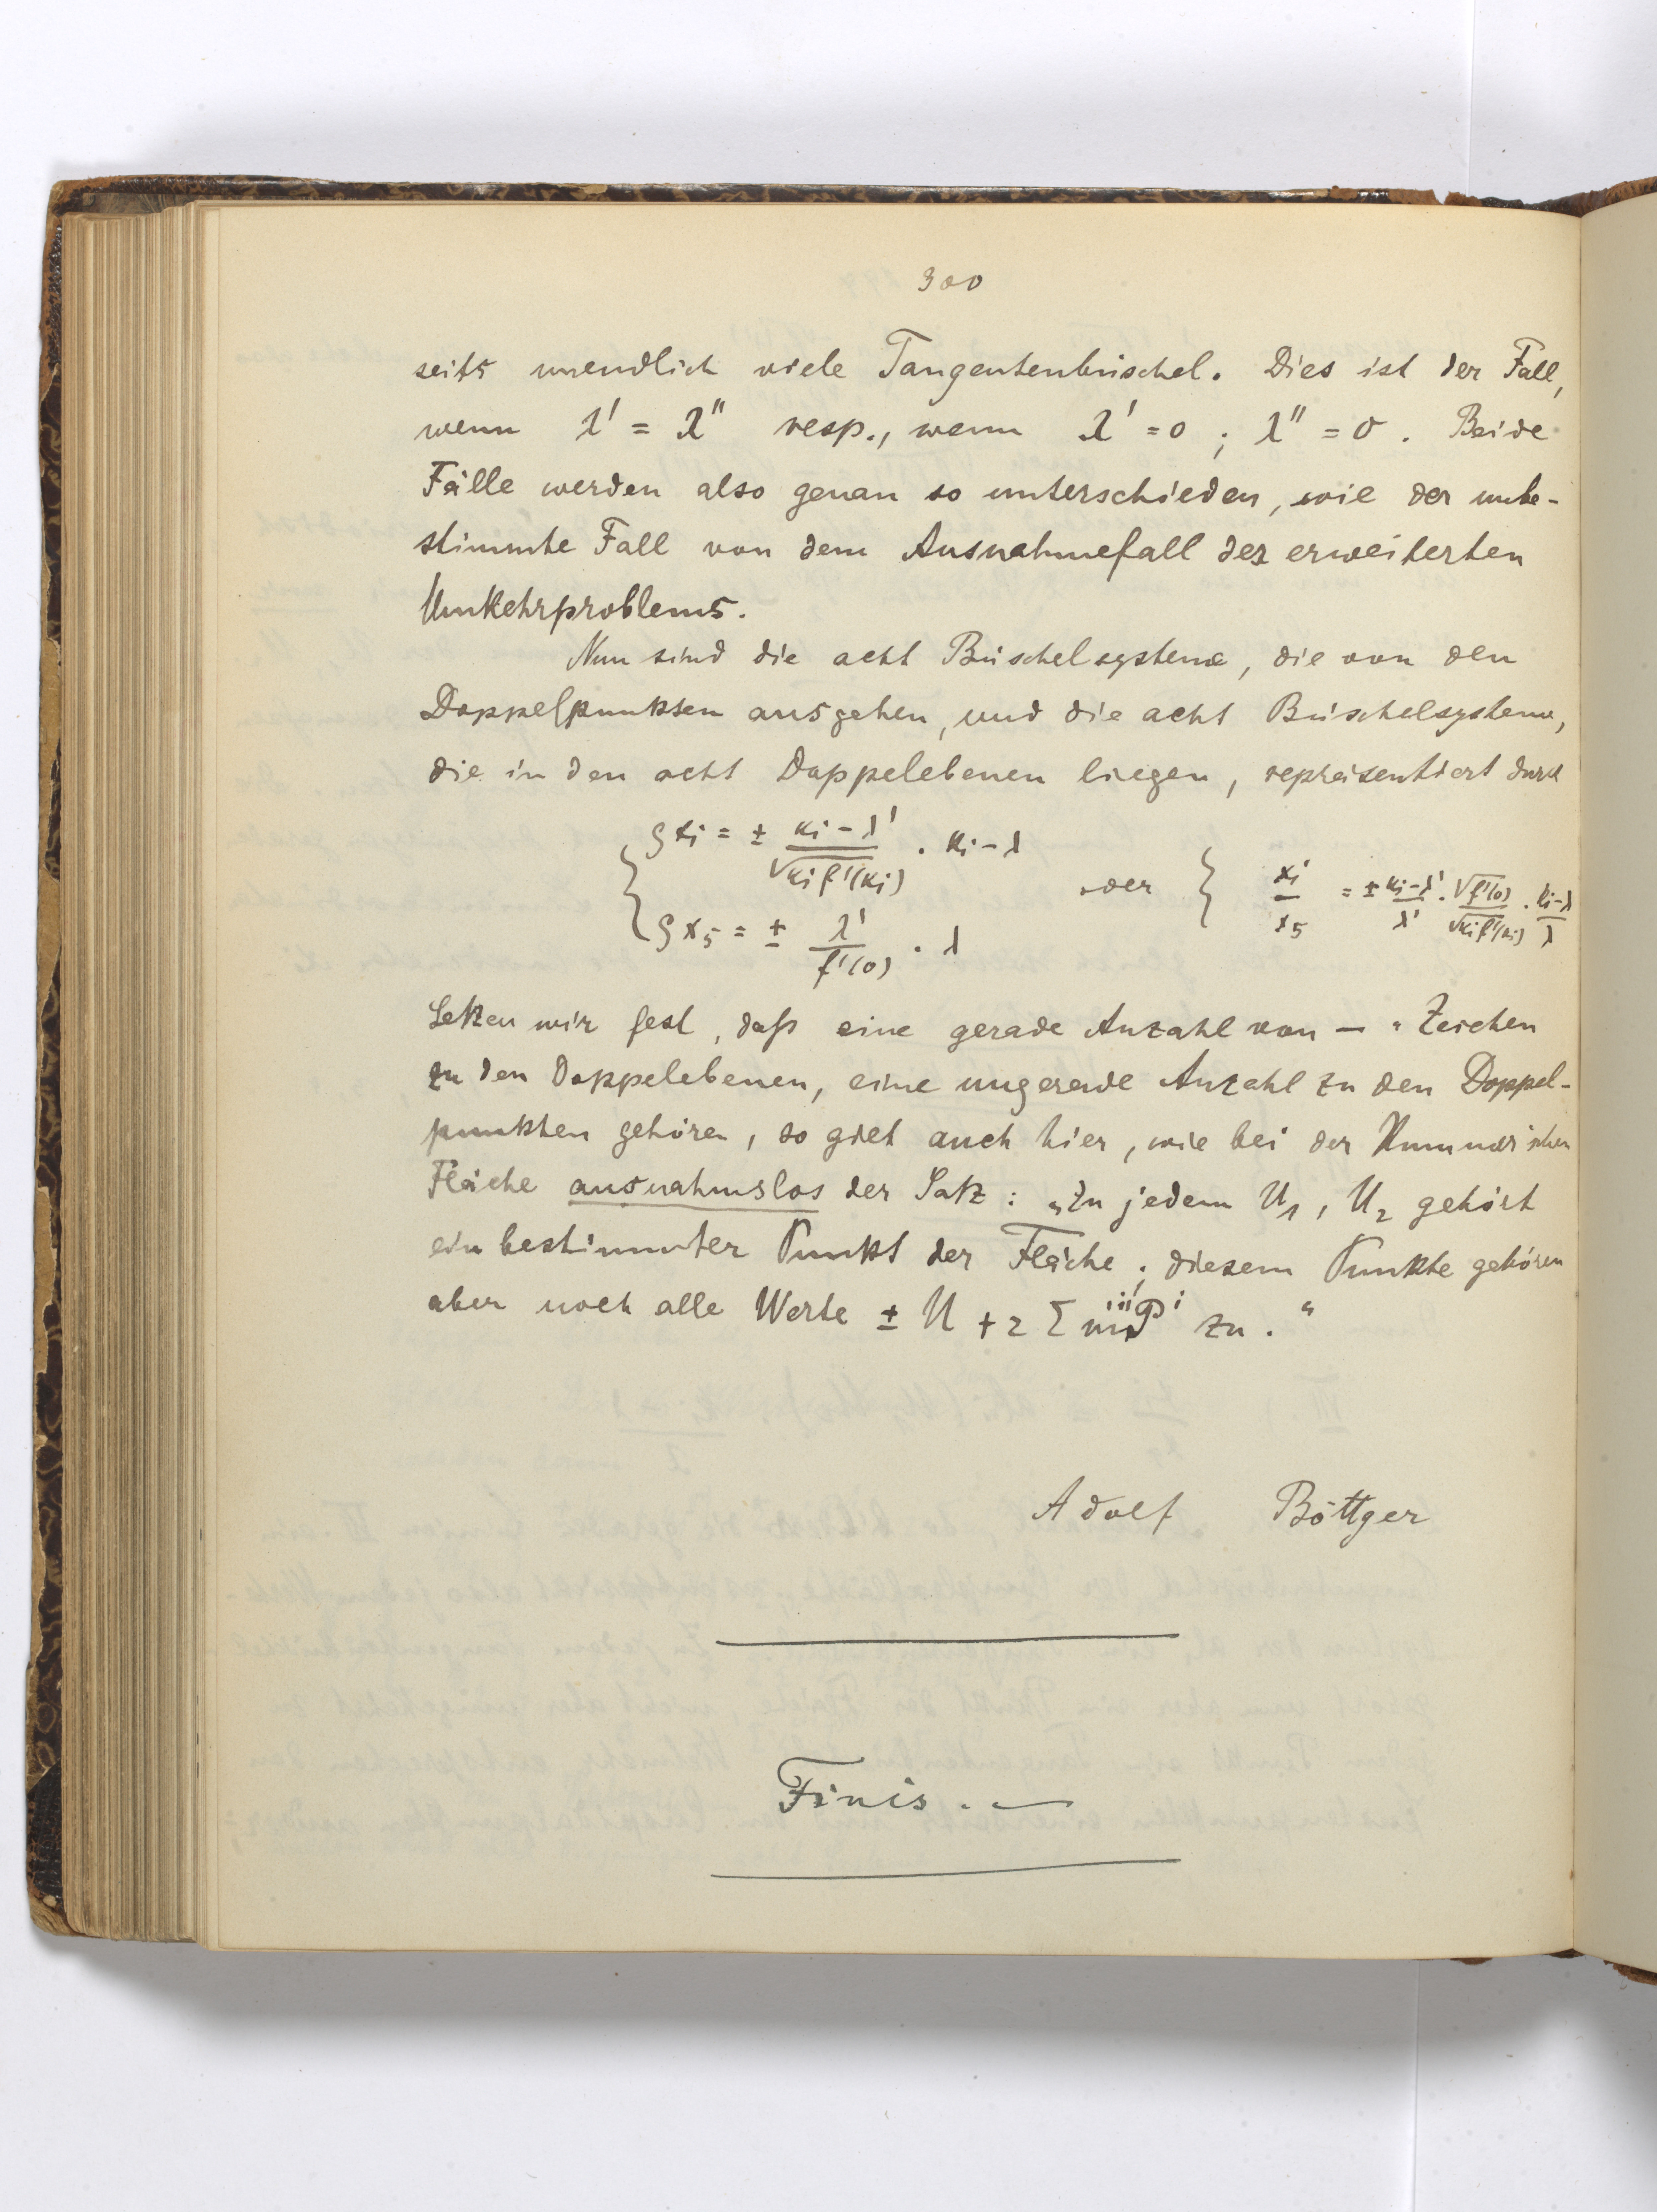 300
seits unendlich viele Tangentenbüschel. Dies ist der Fall,
wenn λ' = λ'' resp., wenn λ' = 0 ; λ'' = 0 . Beide
Fälle werden also genau so unterschieden, wie der unbe-
stimmte Fall von dem Ausnahmefall des erweiterten
Umkehrproblems.
Nun sind die acht Büschelsysteme, die von den
Doppelpunkten ausgehen, und die acht Büschelsysteme,
die in den acht Doppelebenen liegen, repräsentiert durch
{ ρxi = ± (κi − λ') / √(κi f'(κi)) · κi − λ
ρx5 = ± λ' / f'(0) · λ
oder { xi / x5 = ± (κi − λ') / λ' · √f'(0) / √(κi f'(κi)) · (κi − λ) / λ
Setzen wir fest, daß eine gerade Anzahl von — " Zeichen
zu den Doppelebenen, eine ungerade Anzahl zu den Doppel-
punkten gehören, so gilt auch hier, wie bei der Kummerschen
Fläche ausnahmslos der Satz : „Zu jedem U1, U2 gehört
ein bestimmter Punkt der Fläche ; diesem Punkte gehören
aber noch alle Werte ± U + 2 Σ zu . "
Adolf Böttger
Finis . —